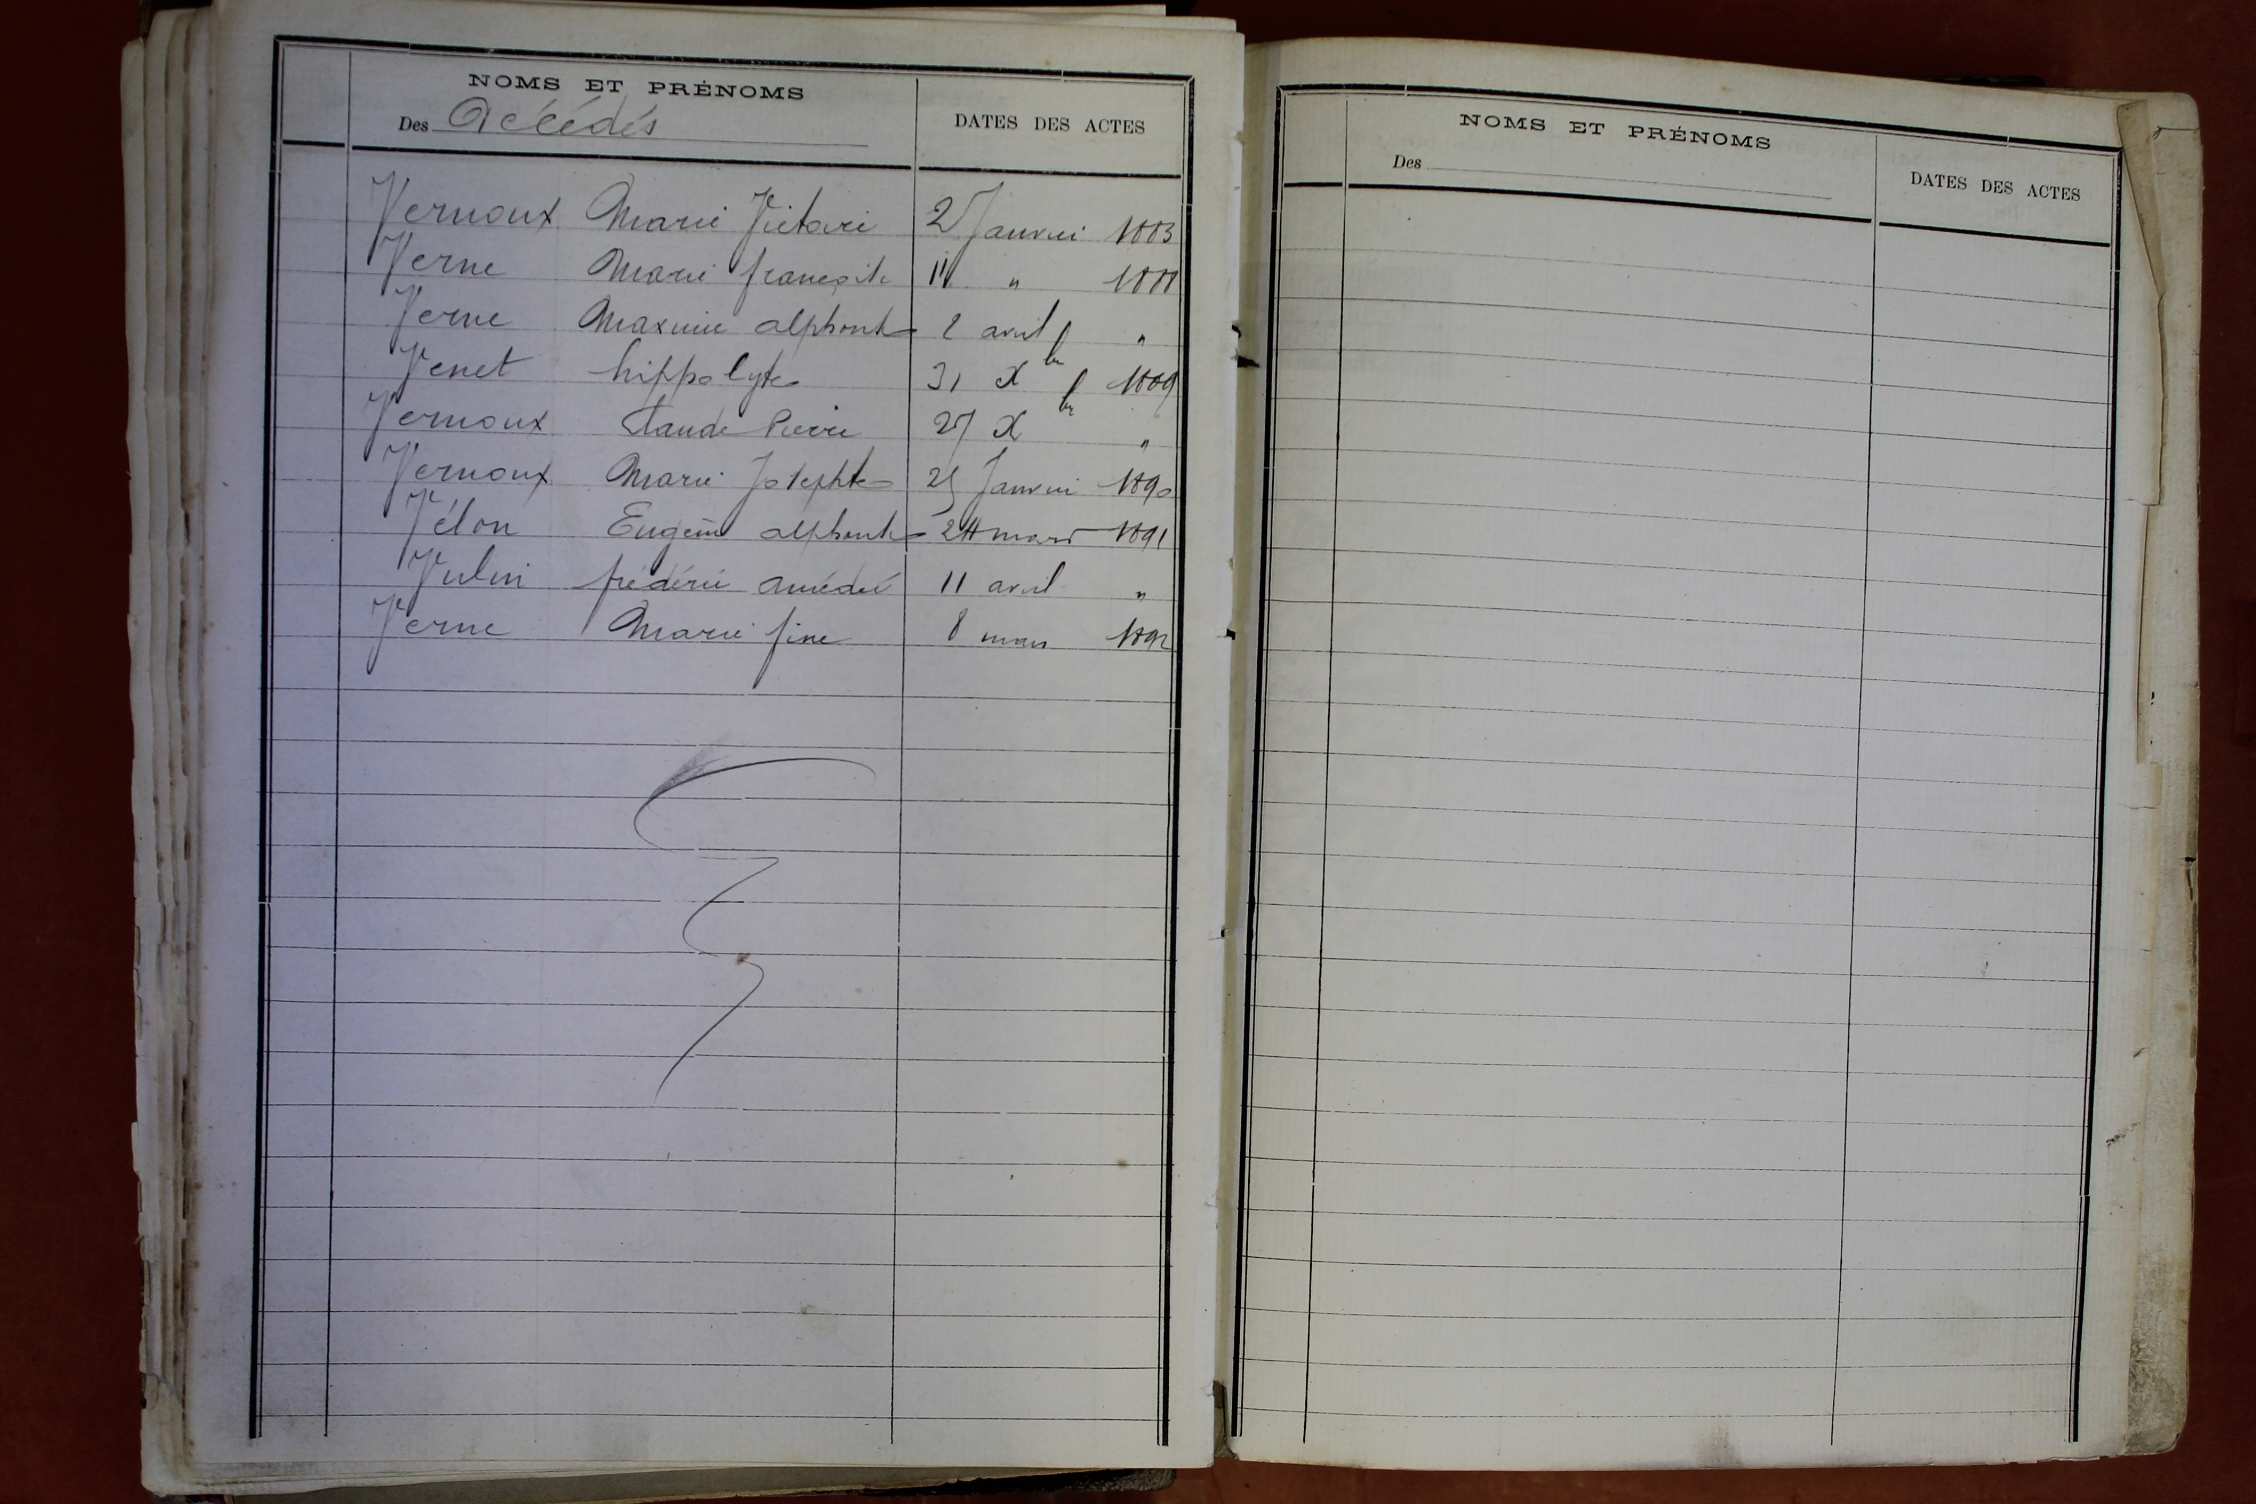 NOMS ET PRÉNOMS
Des Décédés
DATES DES ACTES
Vernoux Marie Victoire 2 Janvier 1883
Verne Marie françoise 11 " 1888
Verne Maximin alphonse 2 avril "
Venet hippolyte 31 Xbre 1889
Vernoux Claude Pierre 27 Xbre "
Vernoux Marie Josephte 25 Janvier 1890
Vélon Eugène alphonse 24 mars 1891
frédéric amédée 11 avril "
Verne Marie fine 8 mars 1892
NOMS ET PRÉNOMS
Des
DATES DES ACTES